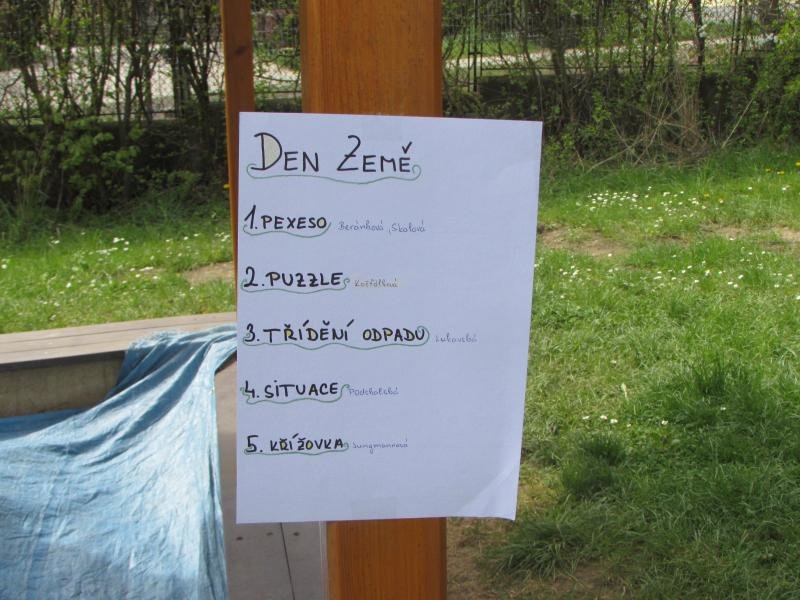 DEN ZEMĚ
1. PEXESO Beránková, Skalová
2. PUZZLE Košťálková
3. TŘÍDĚNÍ ODPADU Lukavská
4. SITUACE Podskalská
5. KŘÍŽOVKA Jungmannová